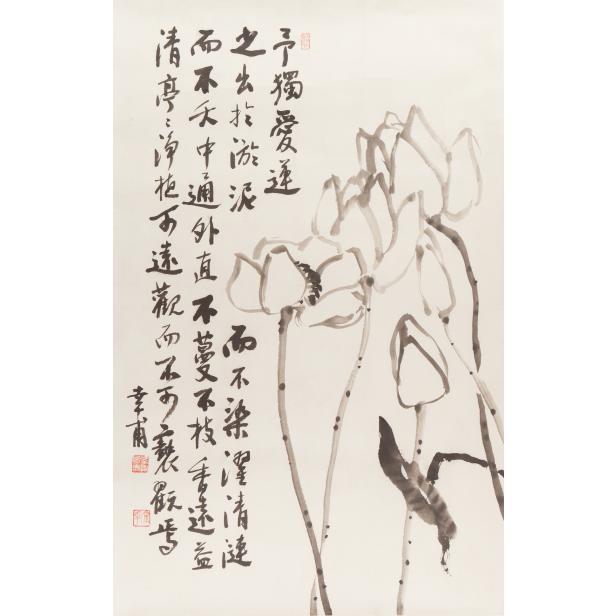 予獨愛蓮
之出扵淤泥而不染濯清漣
而不夭中通外直不蔓不枝香遠益
清亭〻淨植可遠觀而不可褻翫焉
幸甫